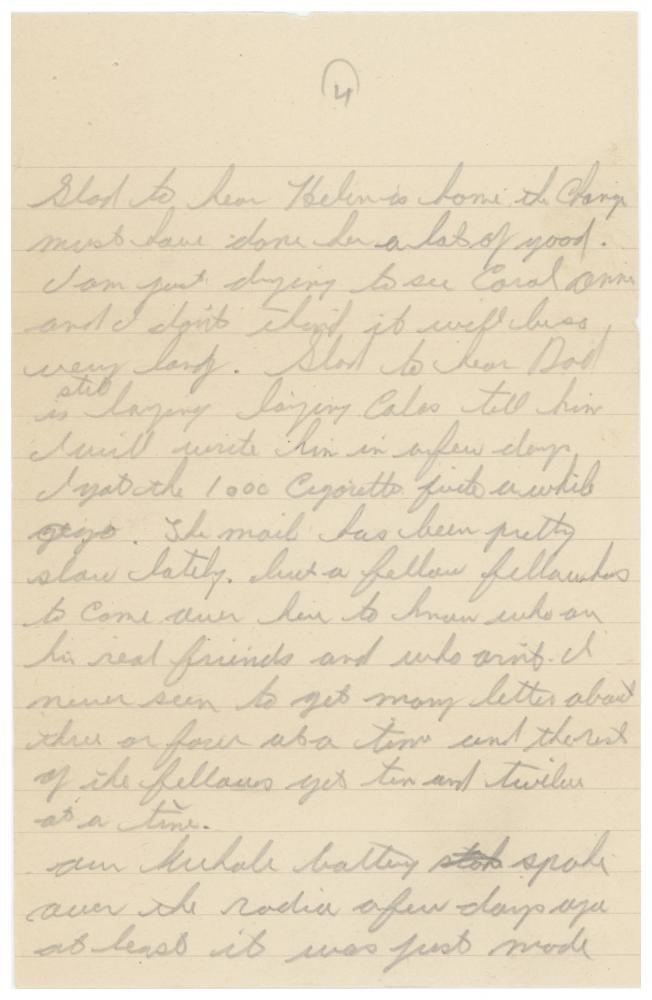 4
Glad to hear Helen is home the Change
must have done her a lot of good.
I am just dying to see Carol Anne
and I don't think it will be so
very long. Glad to hear Dad
still
is laying laying Calas tell him
I will write him in a few days
I got the 1000 Cigarette quite a while
ago. The mail has been pretty
slow lately. but a fellow fellow has
to come over here to know who are
his real friends and who arn't. I
never seen to get many letter about
three or four at a time and the rest
of the fellows get ten and twelve
at a time.
our whole battery spoke
over the radio a few days ago
at least it was just made